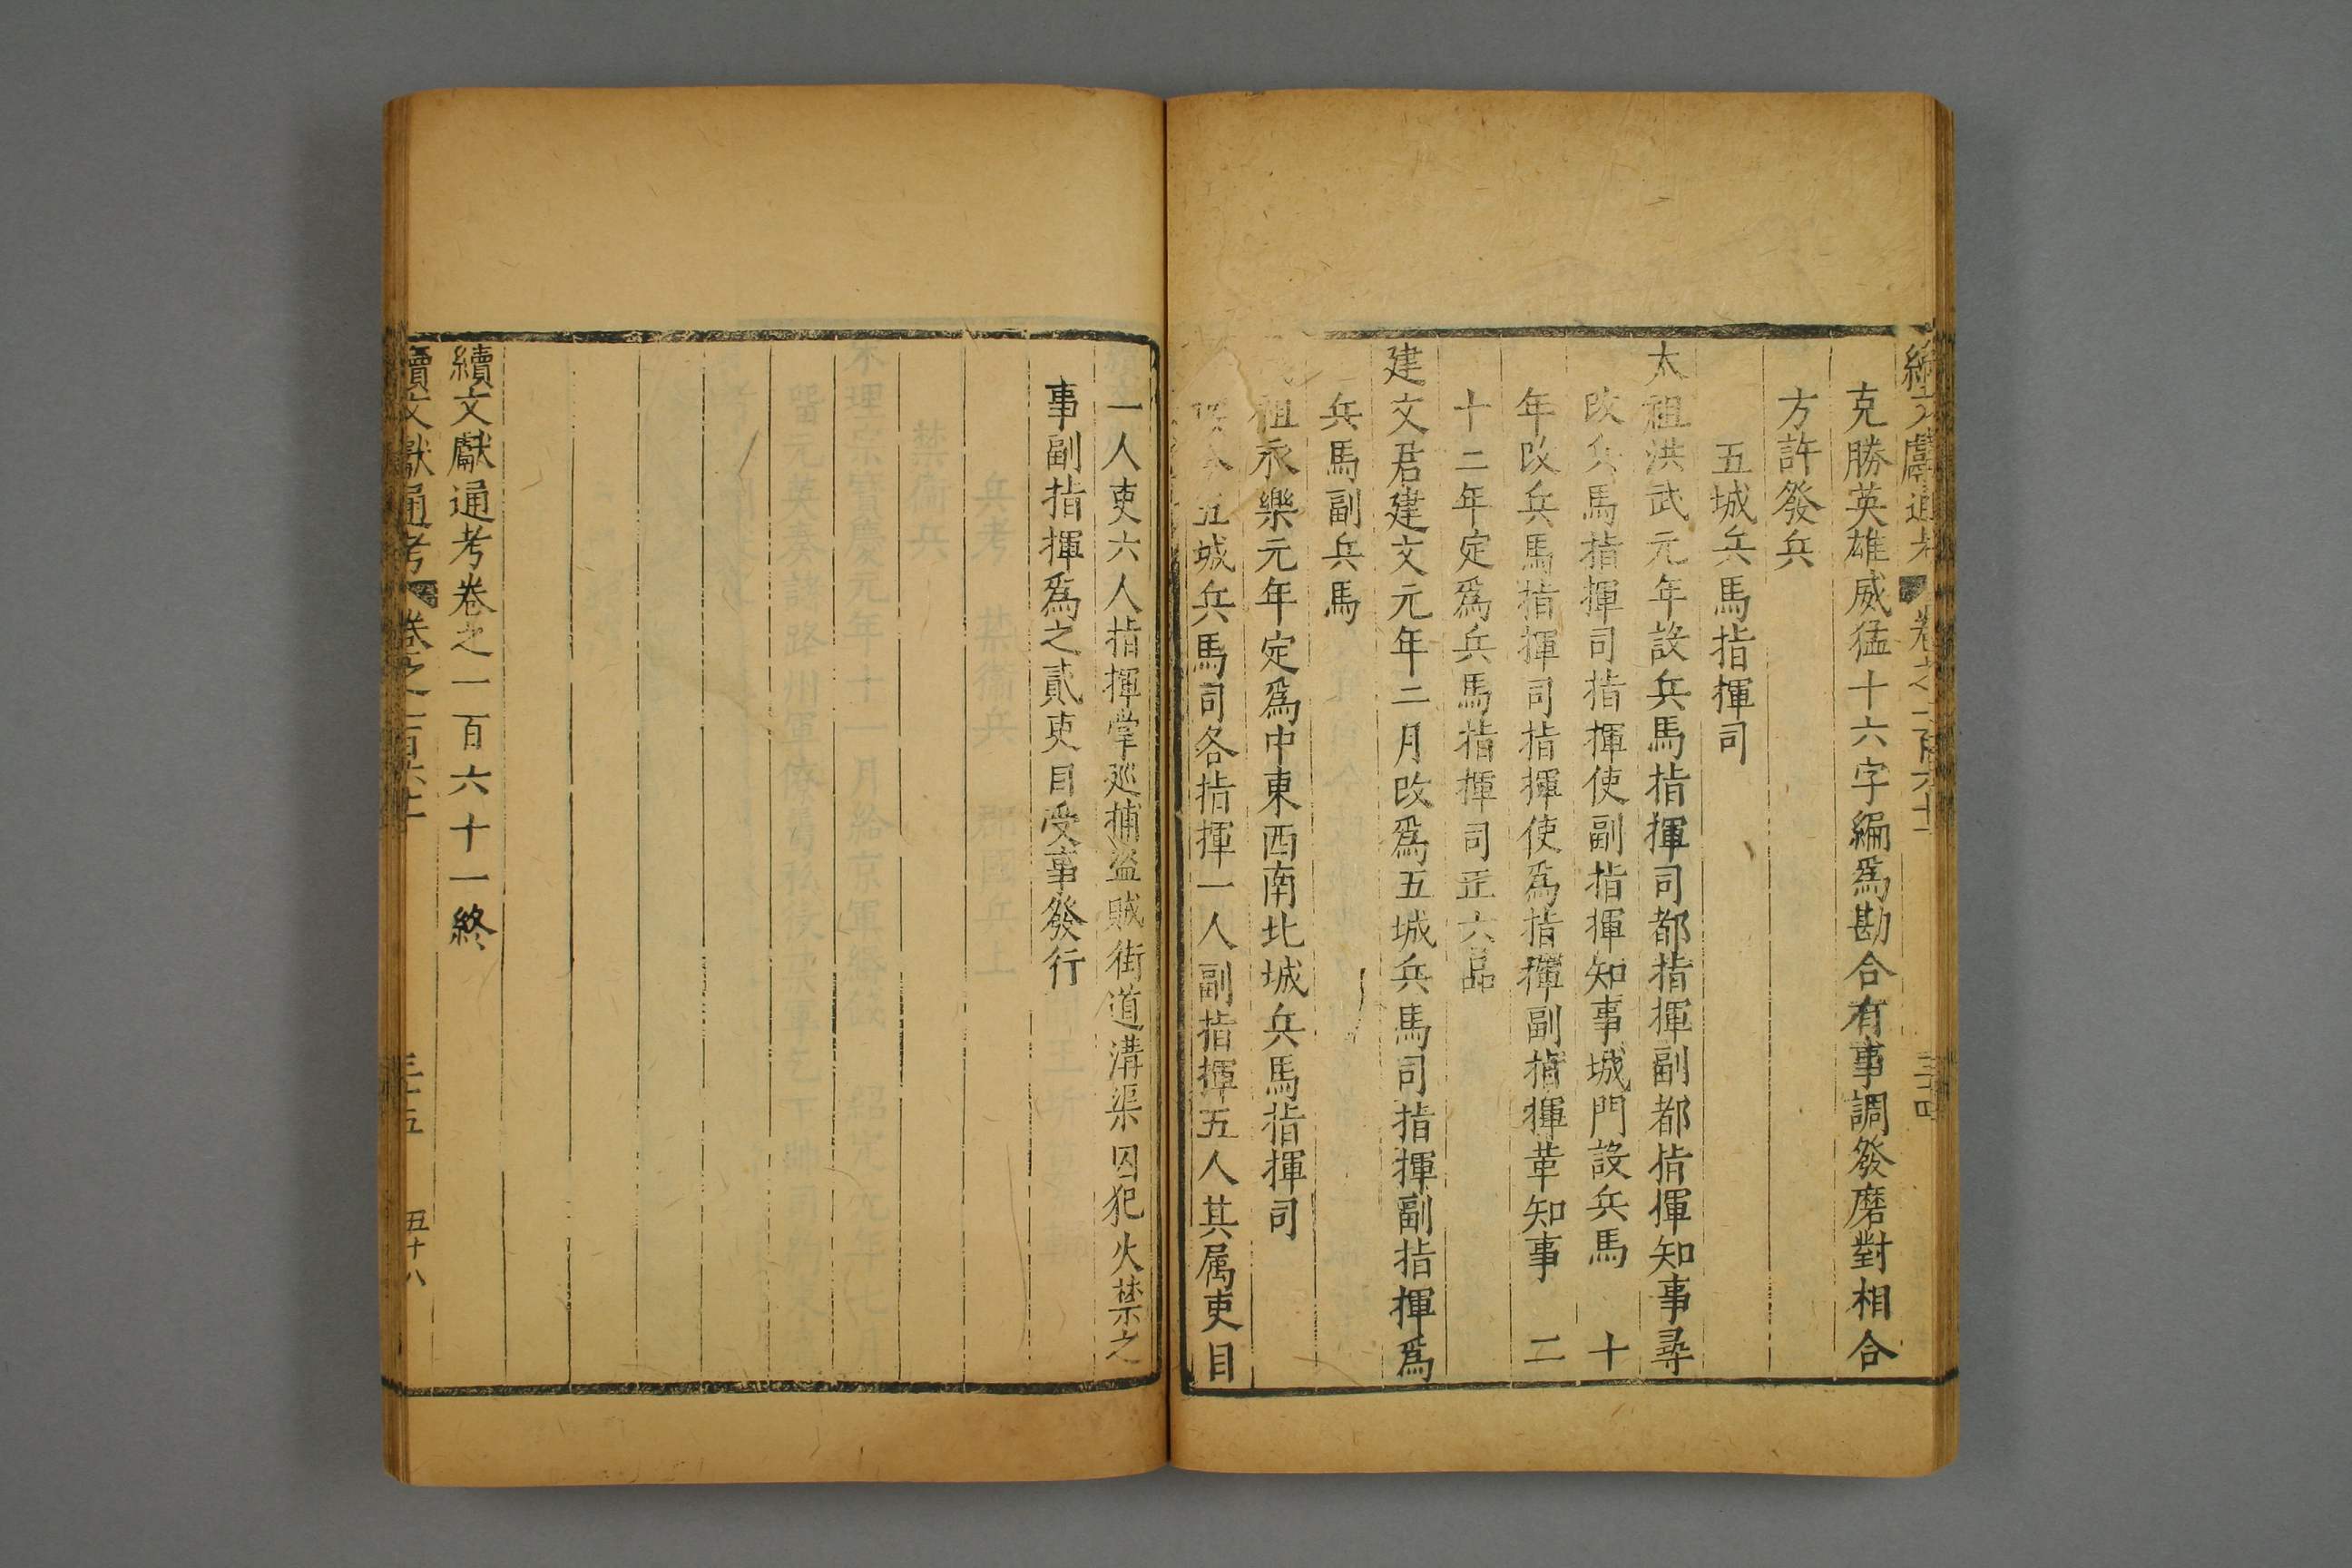 續文獻通考 卷之一百六十一 三十四
克勝英雄威猛十六字編爲勘合有事調發磨對相合
方許發兵
五城兵馬指揮司
太祖洪武元年設兵馬指揮司都指揮副都指揮知事尋
改兵馬指揮司指揮使副指揮知事城門設兵馬 十
年改兵馬指揮司指揮使爲指揮副指揮革知事 二
十二年定爲兵馬指揮司正六品
建文君建文元年二月改爲五城兵馬司指揮副指揮爲
兵馬副兵馬
祖永樂元年定爲中東西南北城兵馬指揮司
五城兵馬司各指揮一人副指揮五人其属吏目
一人吏六人指揮掌巡捕盜賊街道溝渠囚犯火禁之
事副指揮爲之貳吏目受事發行
續文獻通考卷之一百六十一終
續文獻通考 卷之一百六十一 三十五 五十八